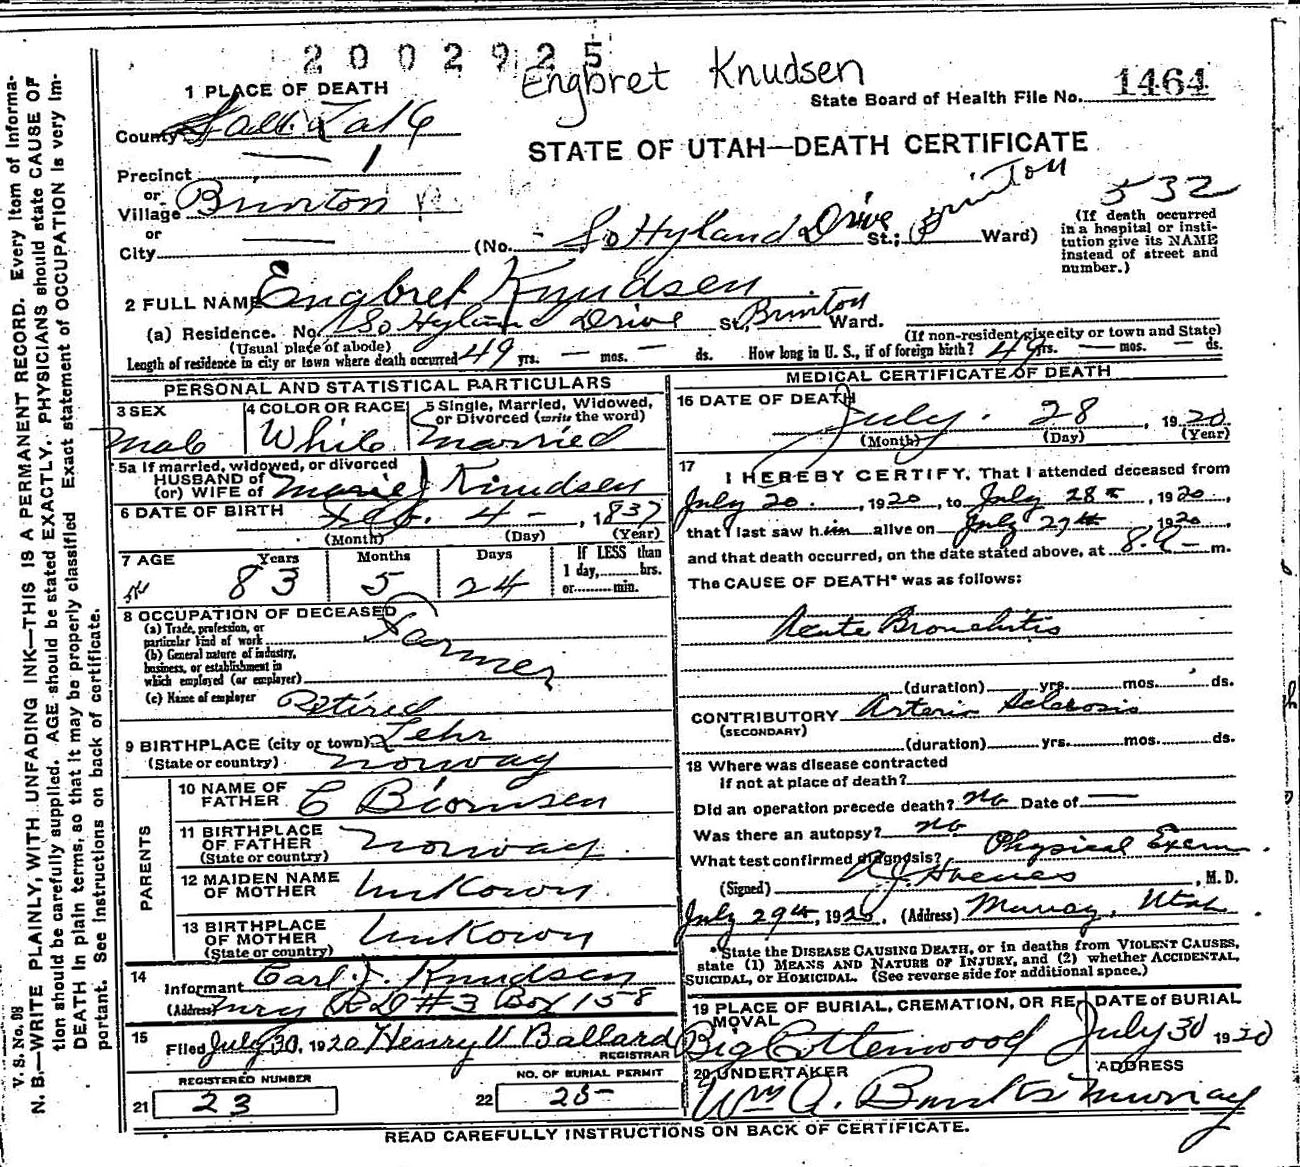 2002925
Engbret Knudsen
1464
State Board of Health File No.
1 PLACE OF DEATH
County Salt Lake
STATE OF UTAH—DEATH CERTIFICATE
Precinct 1
or
Village Brinton
or
City
(No. So Hyland Drive St.; Brinton Ward)
532
(If death occurred
in a hospital or insti-
tution give its NAME
instead of street and
number.)
2 FULL NAME Engbret Knudsen
(a) Residence. No. So Hyland Drive St., Brinton Ward.
(Usual place of abode) (If non-resident give city or town and State)
Length of residence in city or town where death occurred 49 yrs. — mos. — ds. How long in U. S., if of foreign birth? 49 yrs. — mos. — ds.
PERSONAL AND STATISTICAL PARTICULARS
3 SEX
Male
4 COLOR OR RACE
White
5 Single, Married, Widowed,
or Divorced (write the word)
Married
5a If married, widowed, or divorced
HUSBAND of
(or) WIFE of Marie J Knudsen
6 DATE OF BIRTH Feb. 4 — , 1837
(Month) (Day) (Year)
7 AGE Years Months Days
83 5 24
If LESS than
1 day,......hrs.
or......min.
8 OCCUPATION OF DECEASED
(a) Trade, profession, or
particular kind of work Farmer
(b) General nature of industry,
business, or establishment in
which employed (or employer)
(c) Name of employer Retired
9 BIRTHPLACE (city or town) Lehr
(State or country) Norway
PARENTS
10 NAME OF
FATHER C Biornsen
11 BIRTHPLACE
OF FATHER
(State or country) Norway.
12 MAIDEN NAME
OF MOTHER Unkown.
13 BIRTHPLACE
OF MOTHER
(State or country) Unkown
14
Informant Carl J. Knudsen
(Address) Mury R D #3 Box 158
15
Filed July 30, 1920 Henry V Ballard
REGISTRAR
REGISTERED NUMBER
21 23
NO. OF BURIAL PERMIT
22 25-
MEDICAL CERTIFICATE OF DEATH
16 DATE OF DEATH
July. 28, 1920
(Month) (Day) (Year)
17 I HEREBY CERTIFY, That I attended deceased from
July 20., 1920, to July 28, 1920,
that I last saw him alive on July 27th, 1920,
and that death occurred, on the date stated above, at 8.9— m.
The CAUSE OF DEATH* was as follows:
Acute Bronchitis
(duration) yrs. mos. ds.
CONTRIBUTORY Arterio Sclerosis
(SECONDARY)
(duration) yrs. mos. ds.
18 Where was disease contracted
if not at place of death?
Did an operation precede death? No Date of —
Was there an autopsy? no
What test confirmed diagnosis? Physical Exam.
(Signed) , M. D.
July 29th, 1920. (Address) Murray, Utah.
*State the DISEASE CAUSING DEATH, or in deaths from VIOLENT CAUSES,
state (1) MEANS AND NATURE OF INJURY, and (2) whether ACCIDENTAL,
SUICIDAL, or HOMICIDAL. (See reverse side for additional space.)
19 PLACE OF BURIAL, CREMATION, OR RE-
MOVAL
Big Cottonwood
DATE of BURIAL
July 30 1920
20 UNDERTAKER
Wm A.
ADDRESS
Murray
READ CAREFULLY INSTRUCTIONS ON BACK OF CERTIFICATE.
V. S. No. 98
N. B.—WRITE PLAINLY, WITH UNFADING INK—THIS IS A PERMANENT RECORD. Every item of informa-
tion should be carefully supplied. AGE should be stated EXACTLY. PHYSICIANS should state CAUSE OF
DEATH in plain terms, so that it may be properly classified. Exact statement of OCCUPATION is very im-
portant. See instructions on back of certificate.